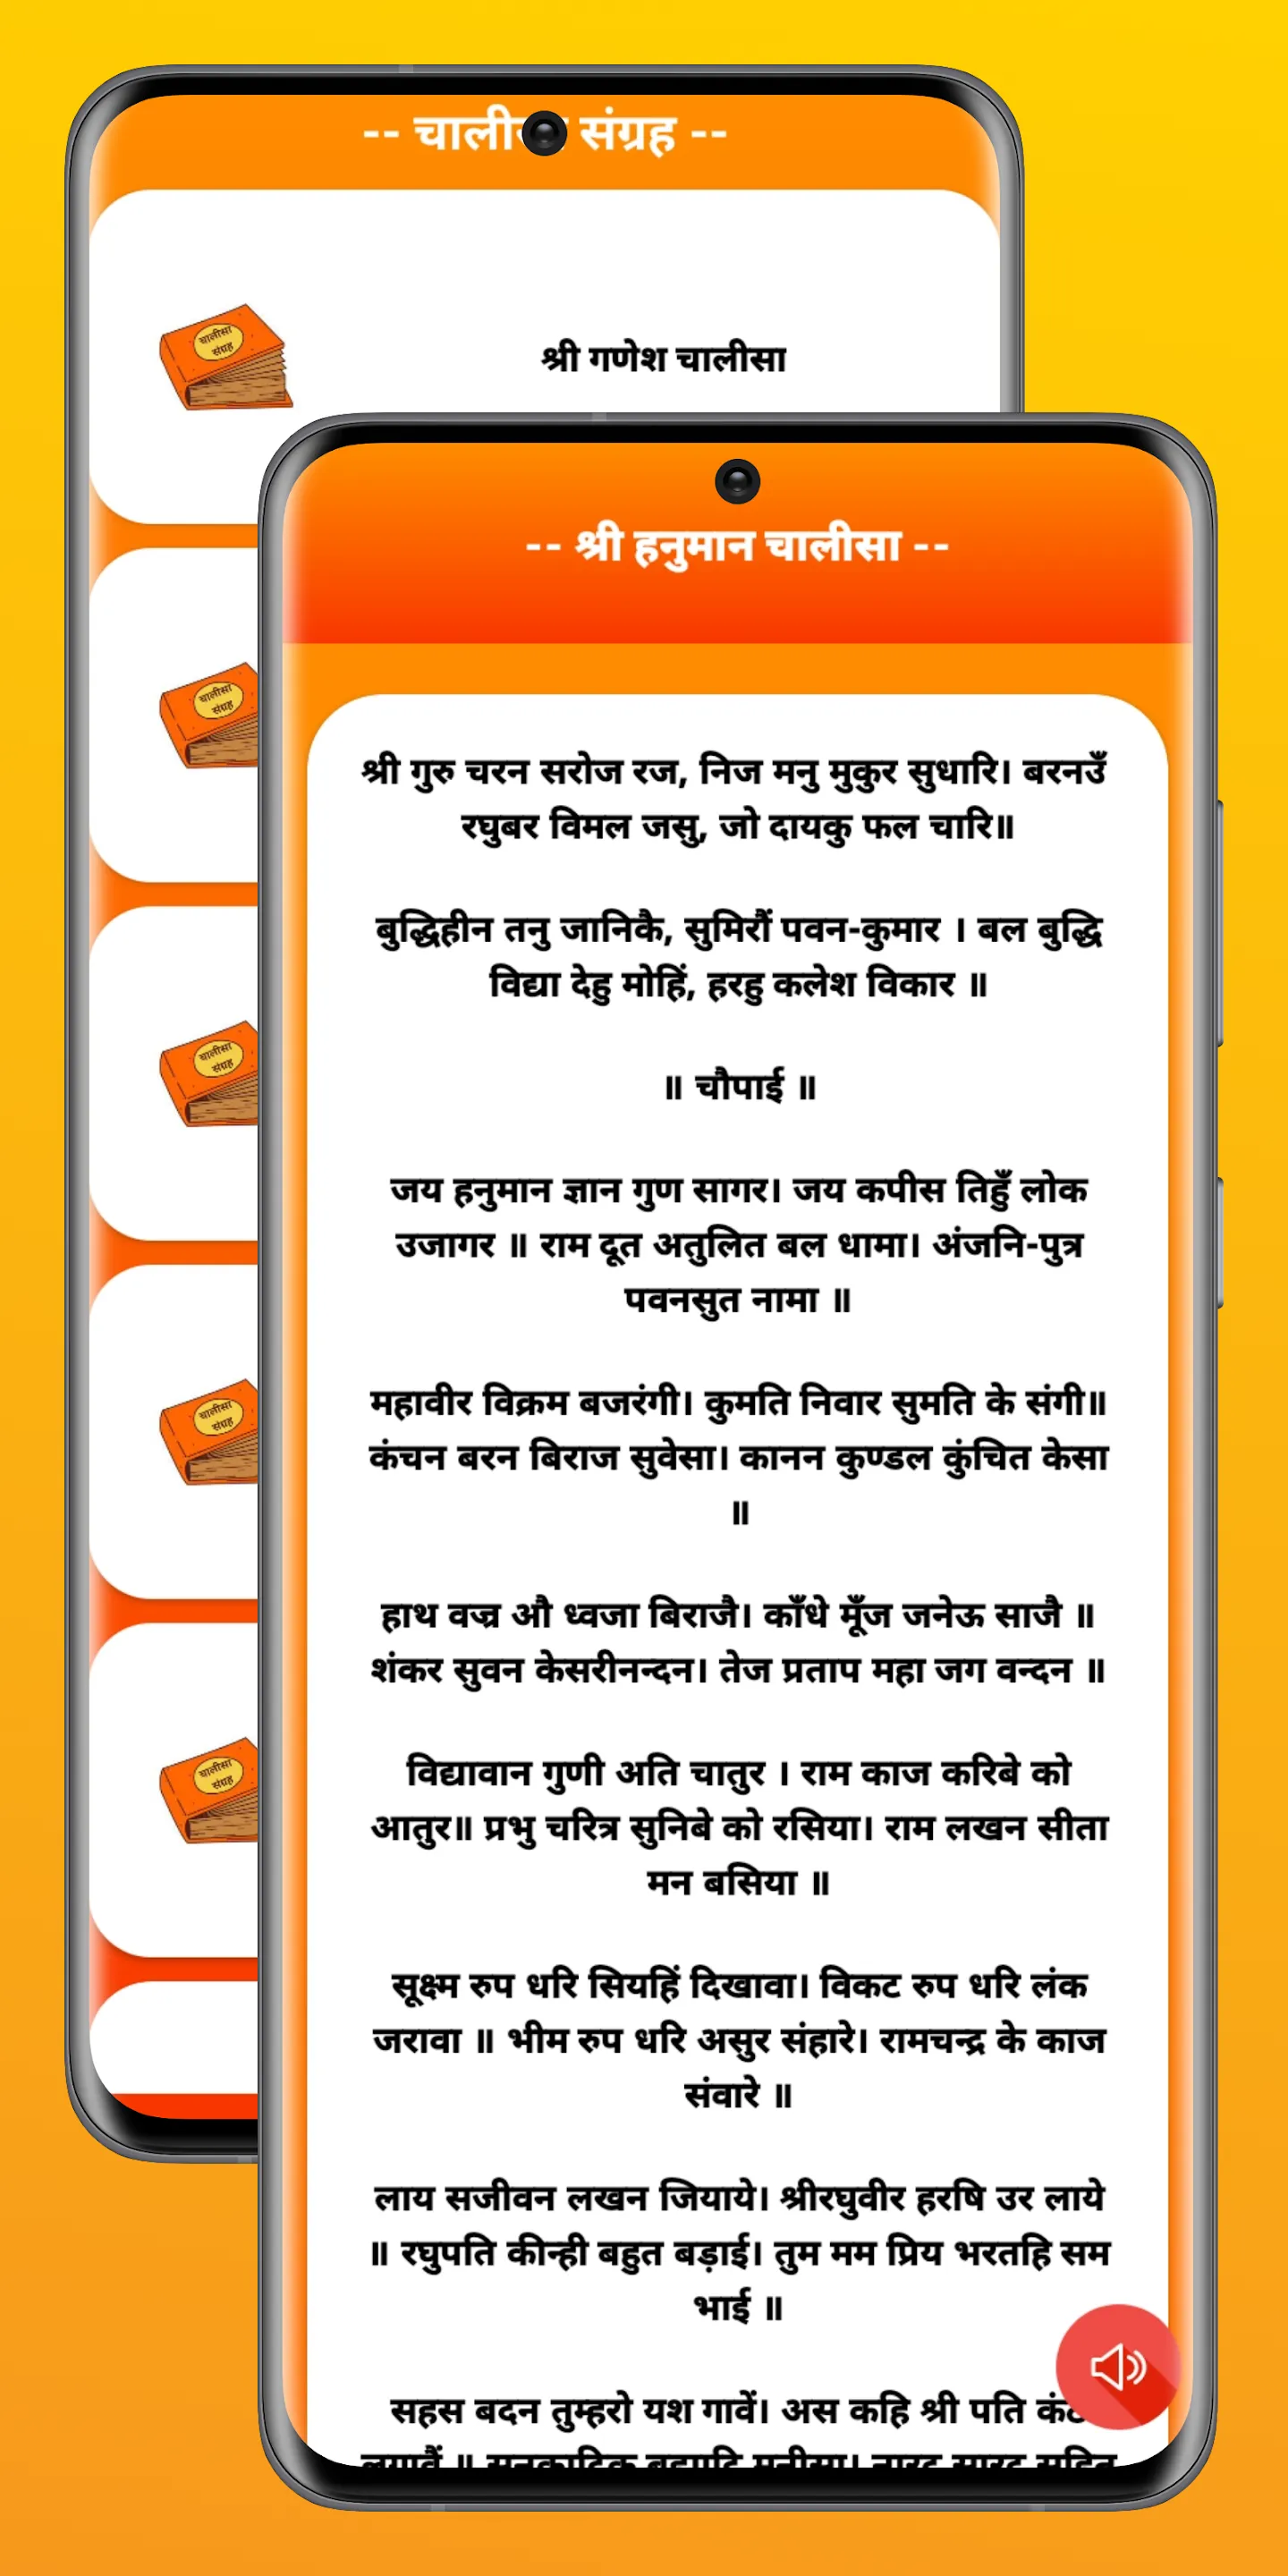 -- चालीसा संग्रह --
चालीसा
संग्रह
श्री गणेश चालीसा
चालीसा
संग्रह
चालीसा
संग्रह
चालीसा
संग्रह
चालीसा
संग्रह
-- श्री हनुमान चालीसा --
श्री गुरु चरन सरोज रज, निज मनु मुकुर सुधारि। बरनउँ
रघुबर विमल जसु, जो दायकु फल चारि॥
बुद्धिहीन तनु जानिकै, सुमिरौं पवन-कुमार । बल बुद्धि
विद्या देहु मोहिं, हरहु कलेश विकार ॥
॥ चौपाई ॥
जय हनुमान ज्ञान गुण सागर। जय कपीस तिहुँ लोक
उजागर ॥ राम दूत अतुलित बल धामा। अंजनि-पुत्र
पवनसुत नामा ॥
महावीर विक्रम बजरंगी। कुमति निवार सुमति के संगी॥
कंचन बरन बिराज सुवेसा। कानन कुण्डल कुंचित केसा
॥
हाथ वज्र औ ध्वजा बिराजै। काँधे मूँज जनेऊ साजै ॥
शंकर सुवन केसरीनन्दन। तेज प्रताप महा जग वन्दन ॥
विद्यावान गुणी अति चातुर । राम काज करिबे को
आतुर॥ प्रभु चरित्र सुनिबे को रसिया। राम लखन सीता
मन बसिया ॥
सूक्ष्म रुप धरि सियहिं दिखावा। विकट रुप धरि लंक
जरावा ॥ भीम रुप धरि असुर संहारे। रामचन्द्र के काज
संवारे ॥
लाय सजीवन लखन जियाये। श्रीरघुवीर हरषि उर लाये
॥ रघुपति कीन्ही बहुत बड़ाई। तुम मम प्रिय भरतहि सम
भाई ॥
सहस बदन तुम्हरो यश गावें। अस कहि श्री पति